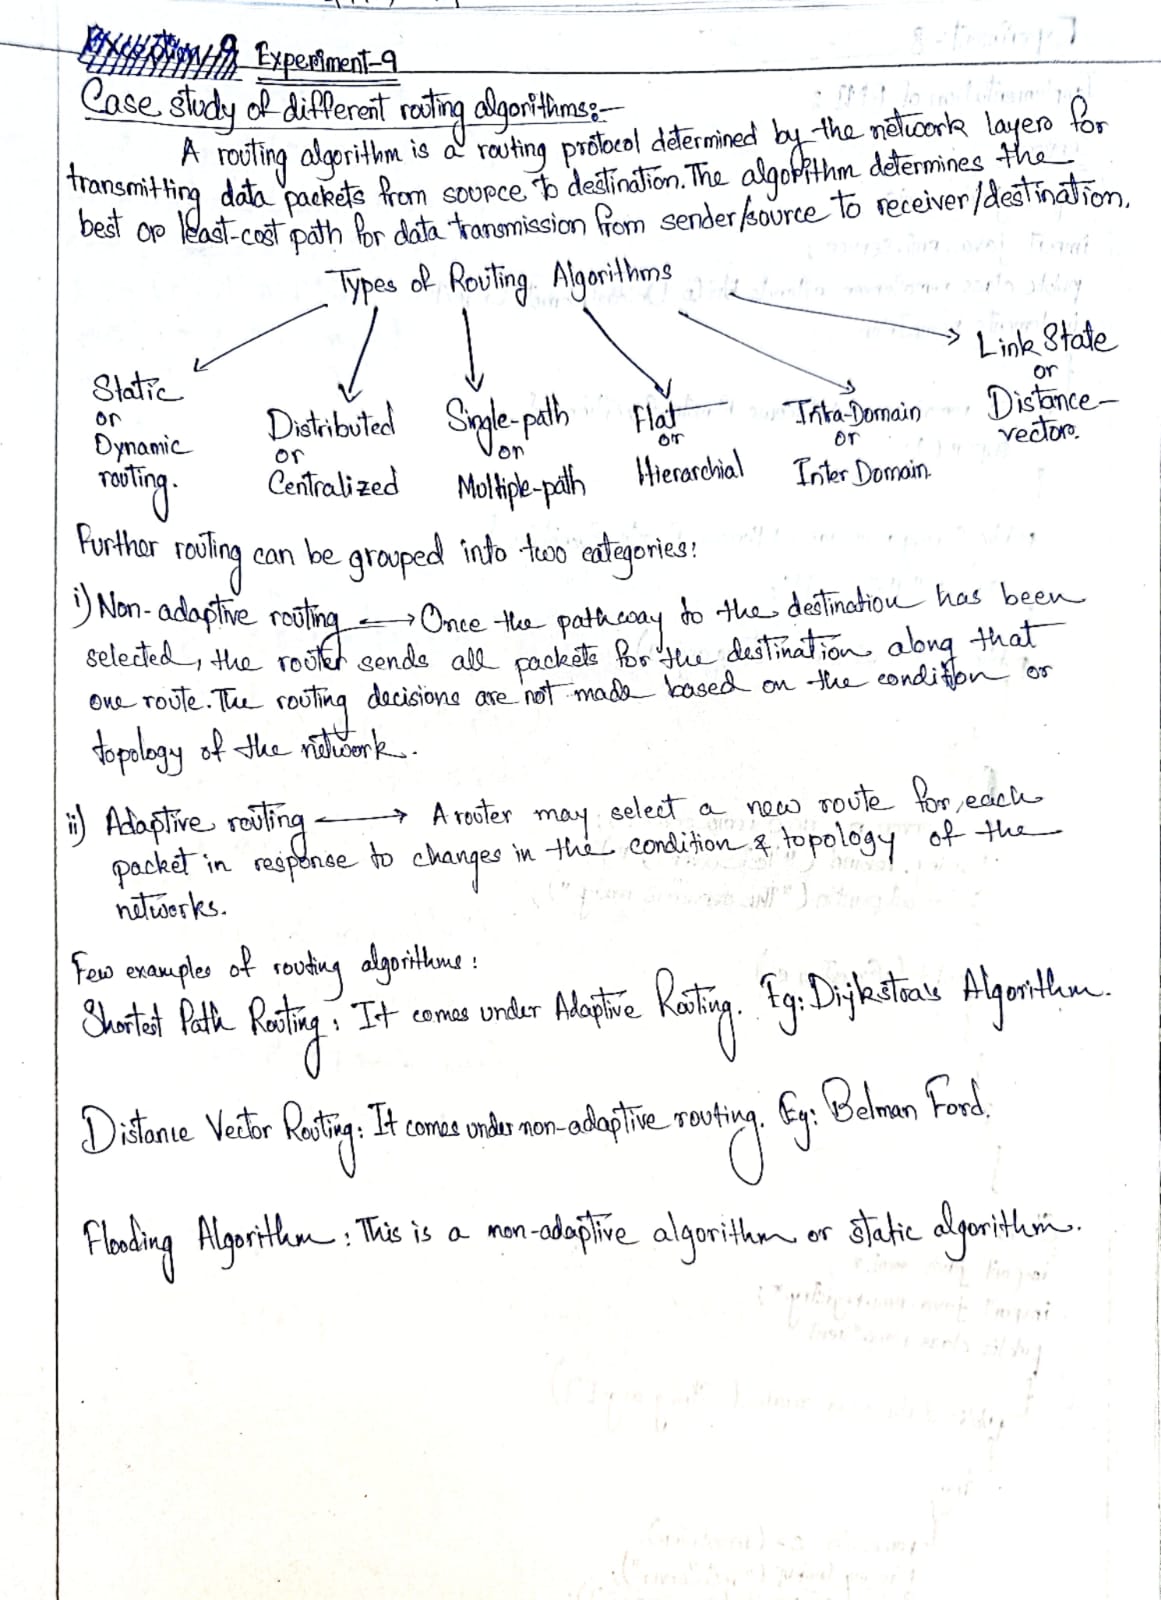 Experiment-9
Case study of different routing algorithms:-
A routing algorithm is a routing protocol determined by the network layer for
transmitting data packets from source to destination. The algorithm determines the
best or least-cost path for data transmission from sender/source to receiver/destination.
Types of Routing Algorithms
Static
or
Dynamic
routing.
Distributed
or
Centralized
Single-path
or
Multiple-path
Flat
or
Hierarchial
Intra-Domain
or
Inter Domain.
Link State
or
Distance-
vector.
Further routing can be grouped into two categories:
i) Non-adaptive routing ⟷ Once the pathway to the destination has been
selected, the router sends all packets for the destination along that
one route. The routing decisions are not made based on the condition or
topology of the network.
ii) Adaptive routing ⟶ A router may select a new route for each
packet in response to changes in the condition & topology of the
networks.
Few examples of routing algorithms:
Shortest Path Routing: It comes under Adaptive Routing. Eg: Dijkstra's Algorithm.
Distance Vector Routing: It comes under non-adaptive routing. Eg: Belman Ford.
Flooding Algorithm: This is a non-adaptive algorithm or static algorithm.